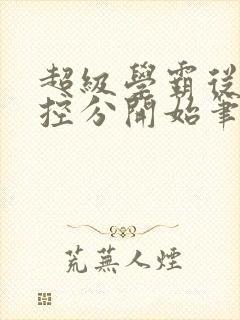 超級學霸從
控分開始筆
荒蕪人煙